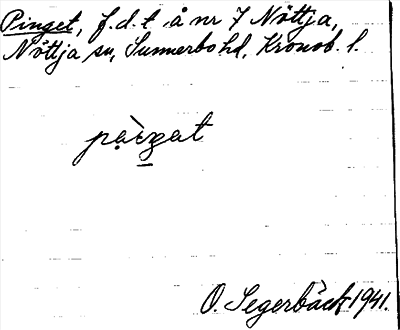 Pinget, f.d. t. å nr 7 Nöttja,
Nöttja sn, Sunnerbo hd, Kronob. l.
O. Segerbäck 1941.